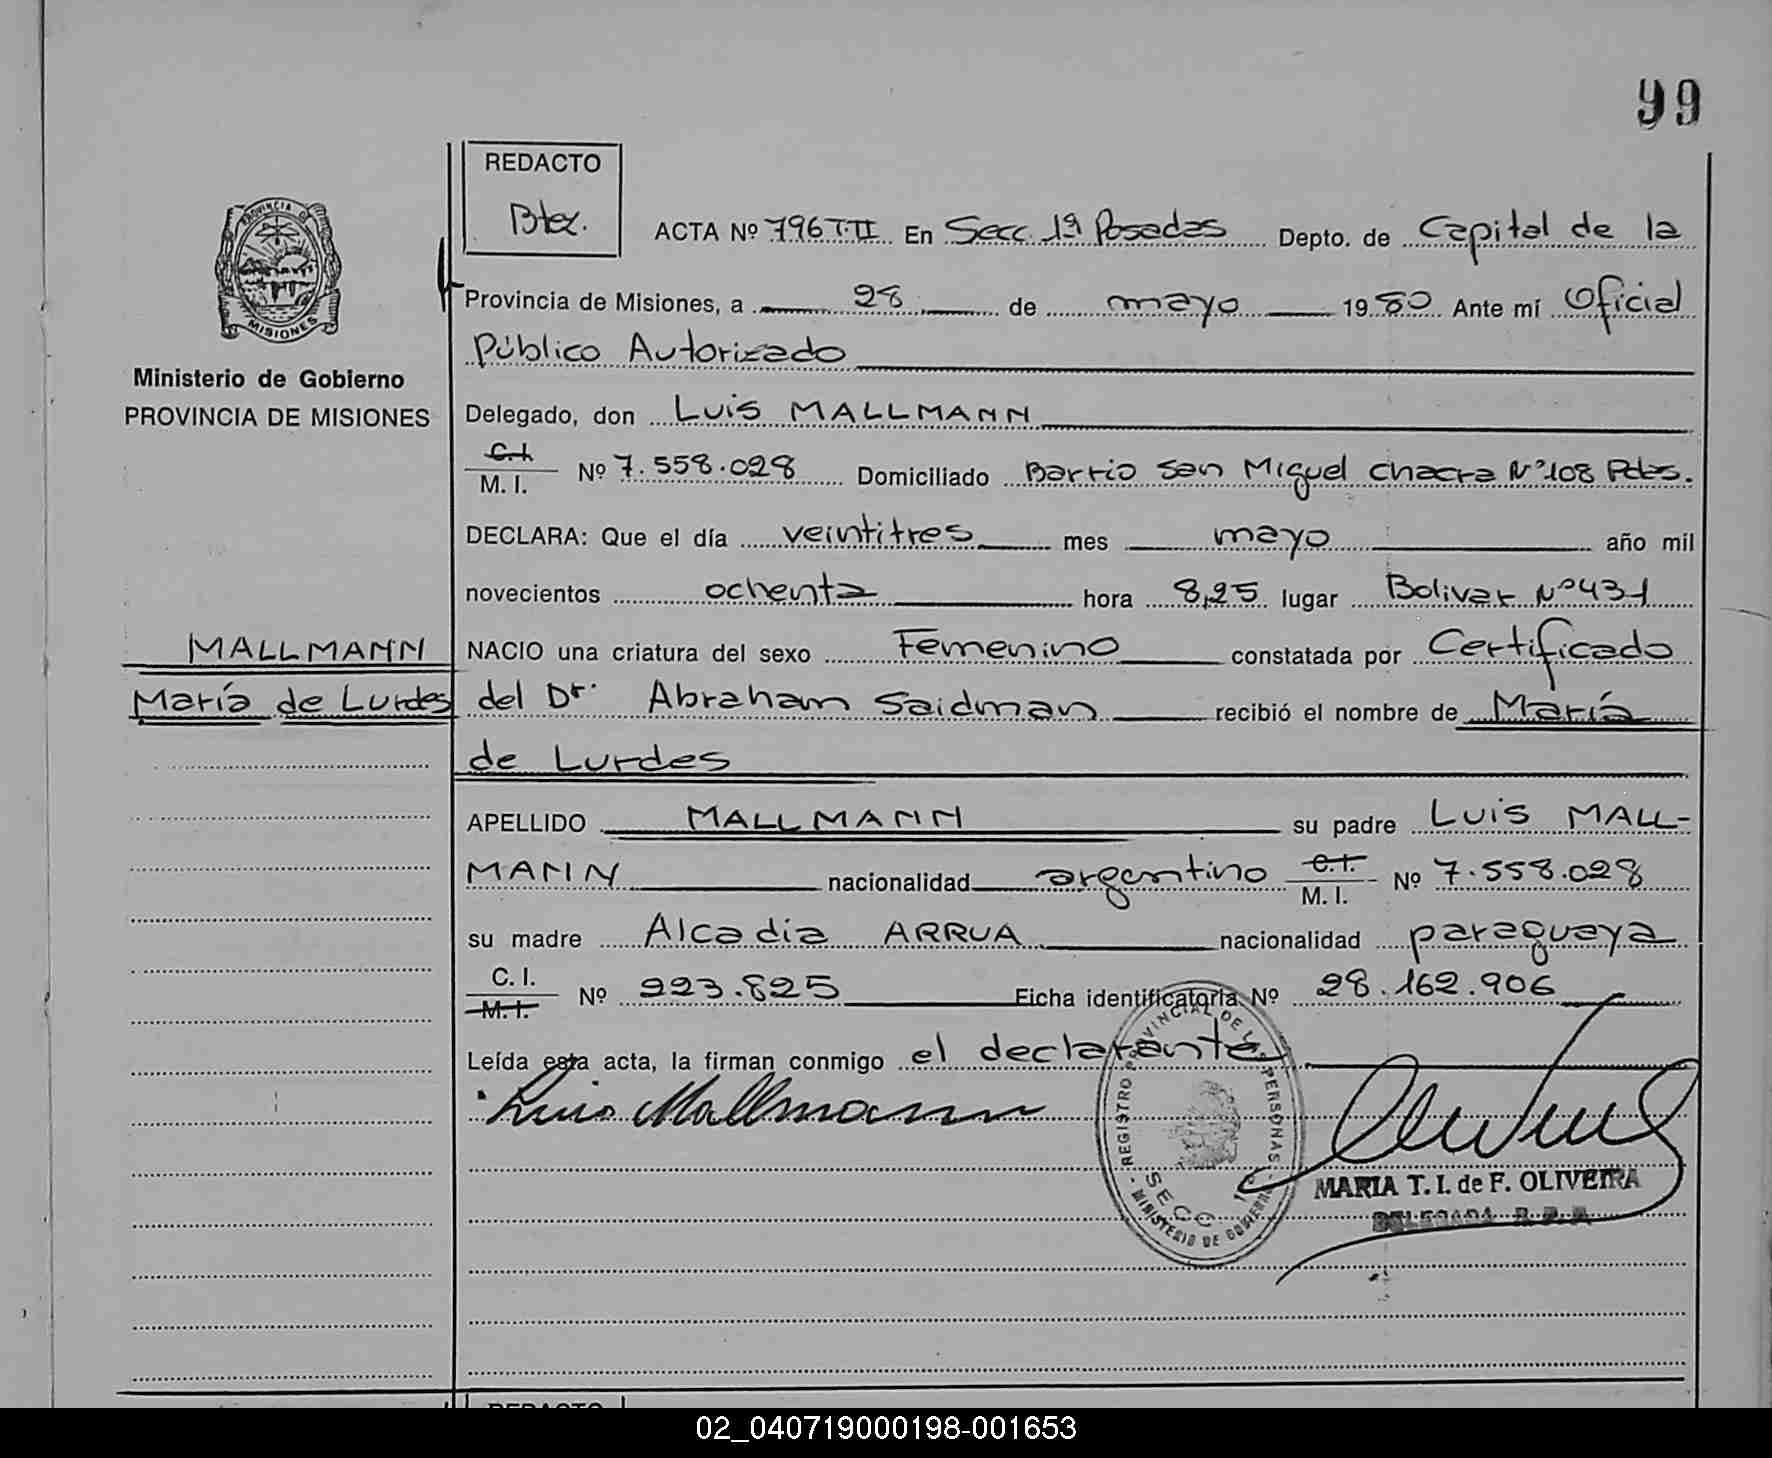 99
REDACTO
Btez.
ACTA Nº 796 T.II En Secc. 1ª Posadas Depto. de Capital de la
Provincia de Misiones, a 28 de mayo 1980 Ante mí Oficial
Público Autorizado
Delegado, don Luis MALLMANN
C.I. M. I. Nº 7.558.028 Domiciliado Barrio San Miguel chacra Nº 108 Pdas.
DECLARA: Que el día veintitres mes mayo año mil
novecientos ochenta hora 8,25 lugar Bolivar Nº 431
NACIO una criatura del sexo Femenino constatada por Certificado
del Dr. Abraham Saidman recibió el nombre de María
de Lurdes
APELLIDO MALLMANN su padre Luis MALL-
MANN nacionalidad argentino C.I. M. I. Nº 7.558.028
su madre Alcadia ARRUA nacionalidad paraguaya
C. I. M. I. Nº 223.825 Ficha identificatoria Nº 28.162.906
Leída esta acta, la firman conmigo el declarante
Luis Mallmann
PROVINCIA DE
MISIONES
Ministerio de Gobierno
PROVINCIA DE MISIONES
MALLMANN
María de Lurdes
REGISTRO PROVINCIAL DE LAS PERSONAS
SECC. 1ª
MINISTERIO DE GOBIERNO
MARIA T. I. de F. OLIVEIRA
DELEGADA R. P. P.
REDACTO
02_040719000198-001653